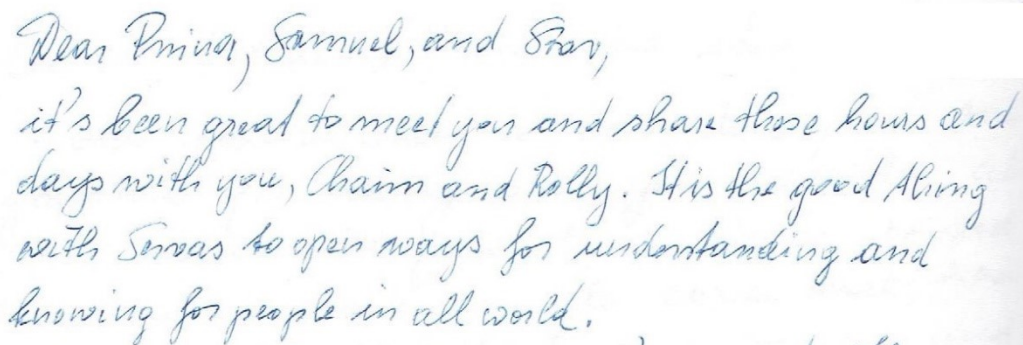 Dear Pnina, Samuel, and Stav,
it's been great to meet you and share those hours and
days with you, Chaim and Rolly. It is the good thing
with Servas to open ways for understanding and
knowing for people in all world.